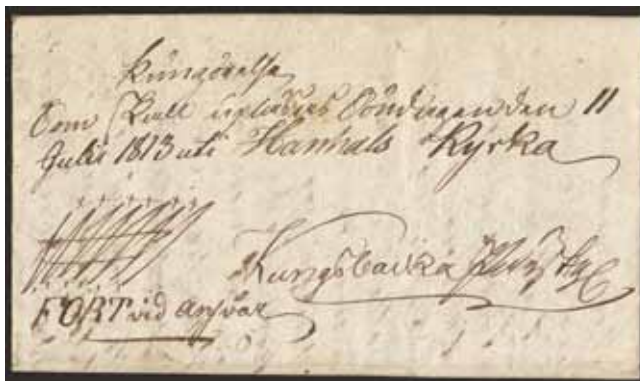 Kungörelse
Som Skall upläses Söndagen den 11
Julii 1813 uti Hanhals Kyrka
Kungsbacka
FORT vid answar